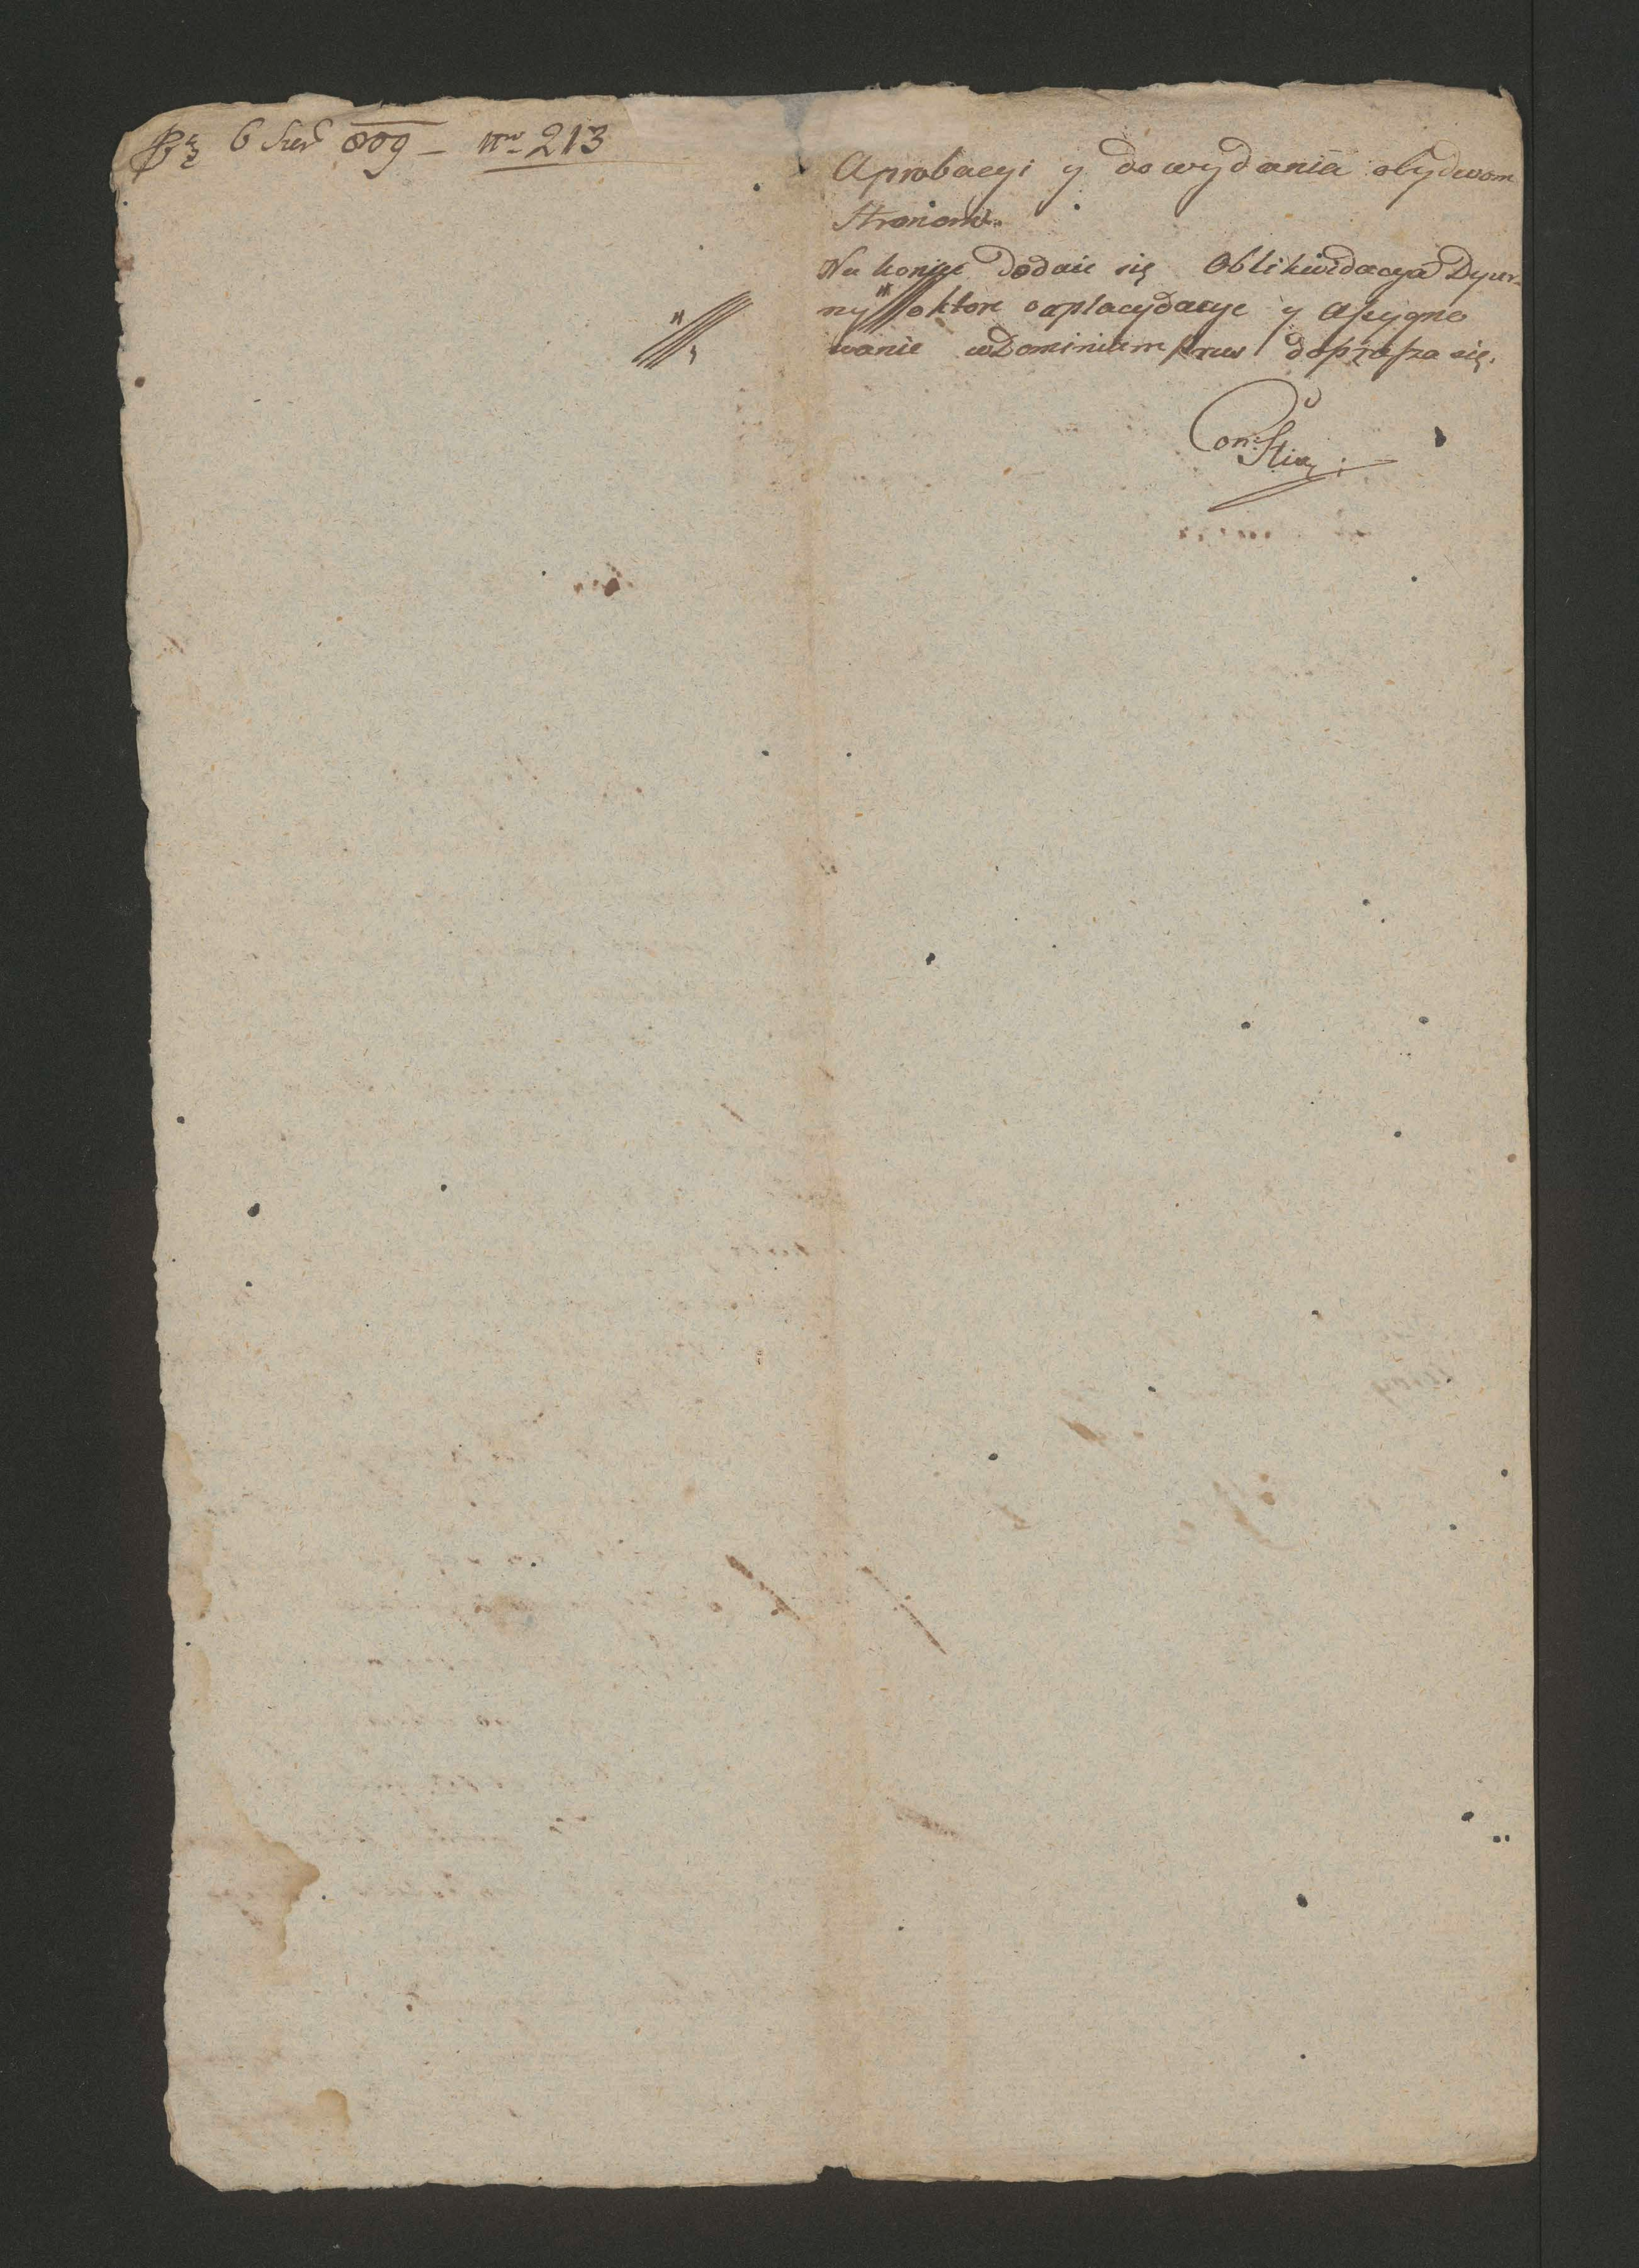 6 809 – nro 213
Aprobacyi y do wydania obydwom
Stronom.
Na koniec dodaie się Oblikwidacya Dyur-
ny o ktore zaplacydacye y assygno
wanie w Dominium doprasza się.